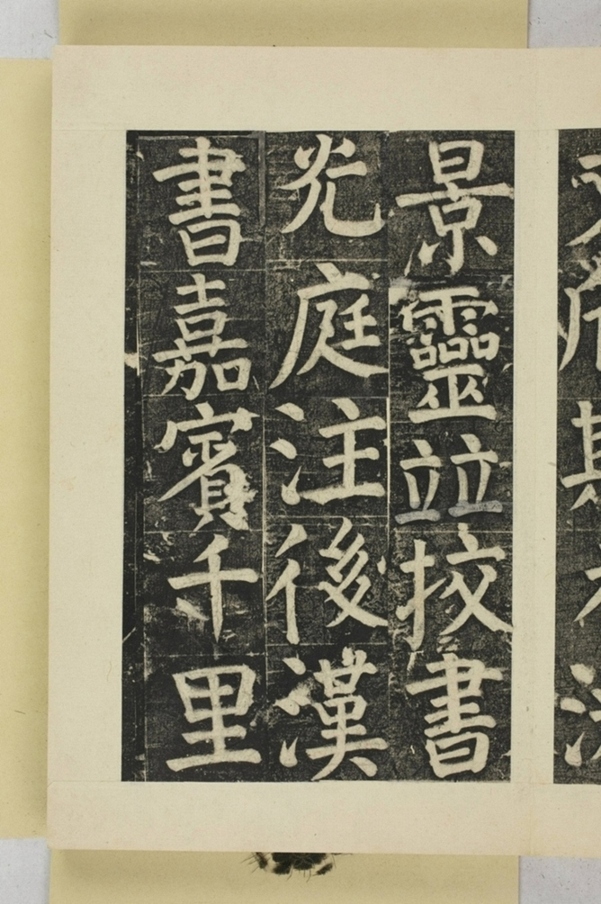 景靈竝挍書
灮庭注後漢
書嘉賓千里